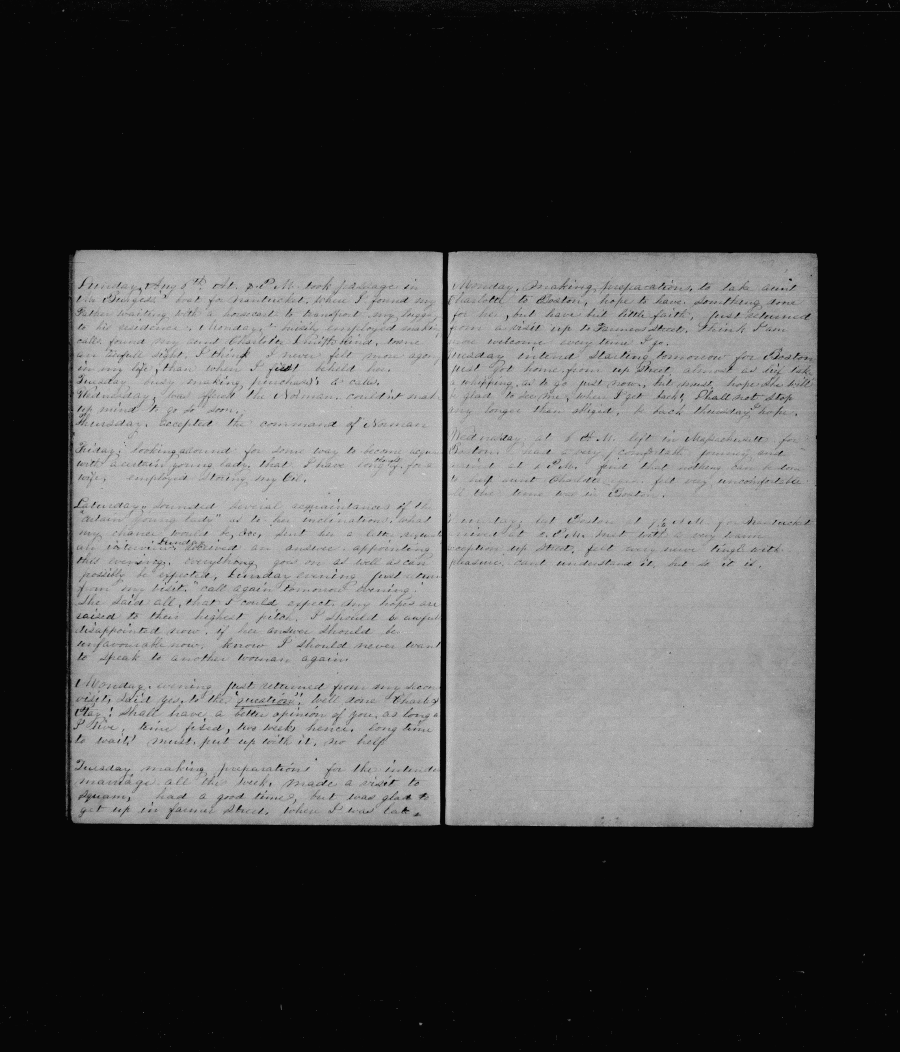 Sunday, Aug 5th, At. 5 P.M. took passage in
the "Burgess" boat for Nantucket, when I found my
Father waiting with a horsecart to transport my
to his residence. Monday, employed making
calls found my aunt Charlotte blind, to me
an sight. I think I never felt more
in my life, than when I first beheld her.
Tuesday busy making purchases & calls.
Wednesday, was offered the Norman, couldn't make
up mind to go so soon.
Thursday. accepted the command of Norman
Friday, looking around for some way to become
with a certain young lady, that I have long for a
wife, employed storing my Oil.
Saturday, sounded several acquaintances of the
"certain young lady" as to her inclination, what
my chance would be, &c, sent her a letter
an interview, Sunday received an answer appointing
this evening. everything goes on as well as can
possibly be expected, Sunday evening just
from my visit, "call again tomorrow evening."
She said all, that I could expect, my hopes are
raised to their highest pitch, I should be
disappointed now, if her answer should be
unfavourable now, know I should never want
to speak to another woman again.
Monday, evening just returned from my
visit, said yes, to the "question"! Well done "Charley
shall have a better opinion of you, as long as
I live, time fixed, two weeks hence, long time
to wait! must put up with it, no help
Tuesday making preparations for the
marriage all the week, made a visit to
Squam, had a good time, but was glad to
get up in farmer Street. when I was
Monday, making preparations, to take aunt
Charlotte to Boston, hope to have something done
for her, but have but little faith, just returned
from a visit up to Farmers Street, think I am
more welcome every time I go.
Tuesday intend starting tomorrow for Boston
just got home from up street, almost as take
a whipping, as to go just now, but must, hope she will
be glad, to see me, when I get back, shall not stop
any longer than obliged, be back thursday I hope.
Wednesday at A.M. left in Massachusetts for
Boston had a very comfortable journey and
arrived at P.M. find that nothing can be done
to help aunt Charlotte's eyes. felt very uncomfortable
all the time was in Boston.
left Boston at A.M. for Nantucket
arrived at P.M. met with a very warm
reception up street, felt every nerve tingle with
pleasure, cant understand it, but so it is.